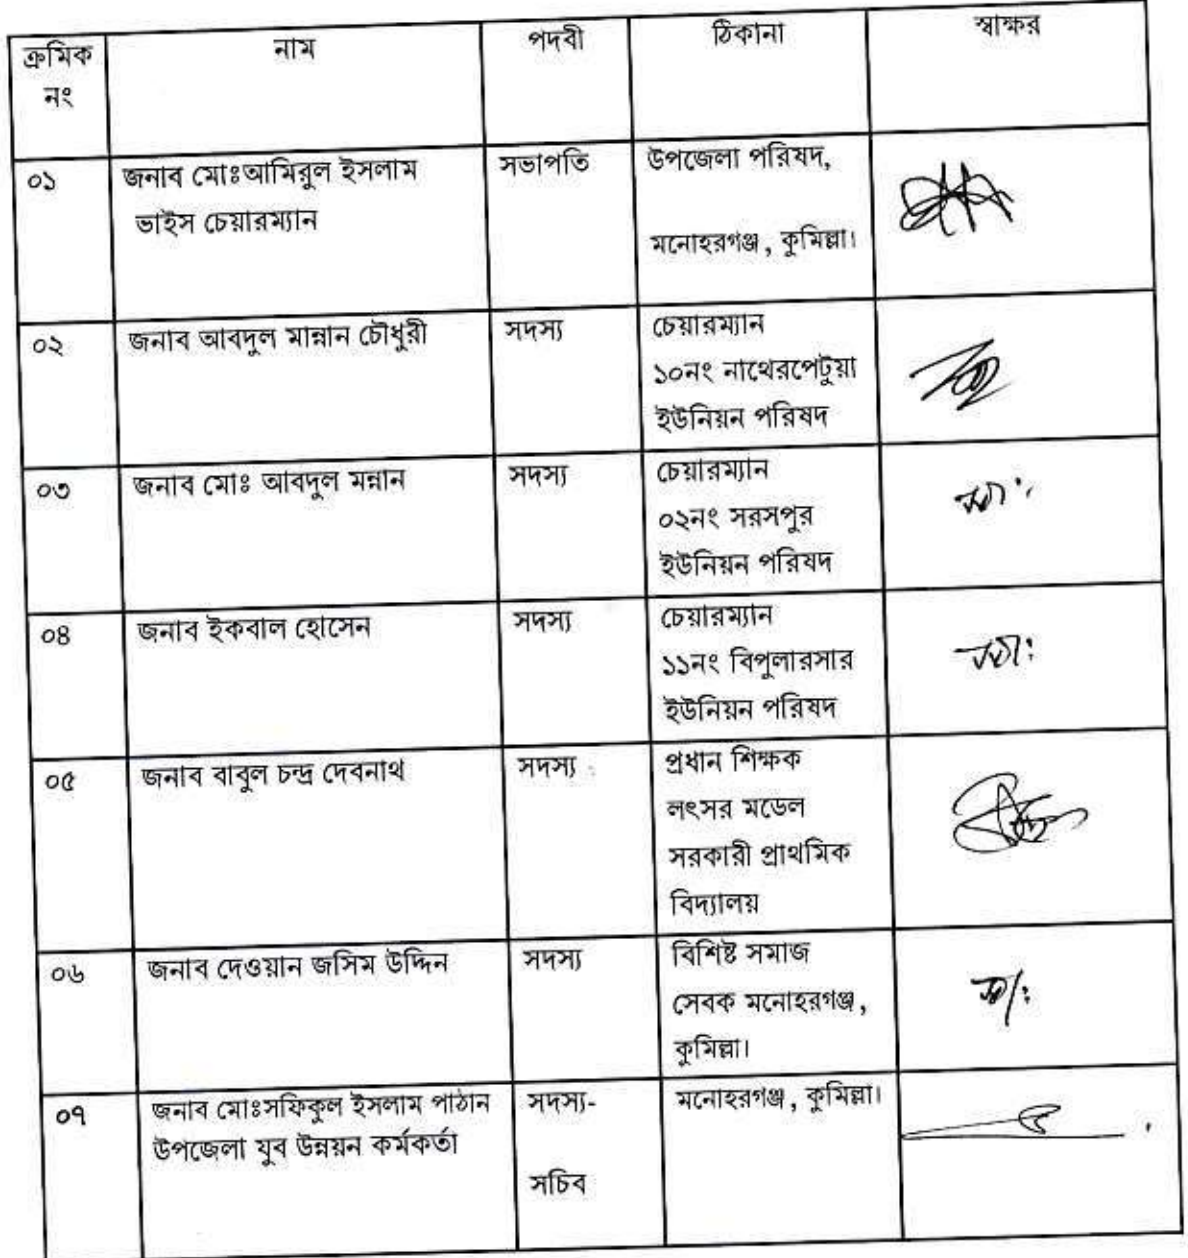 ক্রমিক নং | নাম | পদবী | ঠিকানা | স্বাক্ষর
০১ | জনাব মোঃআমিরুল ইসলাম
ভাইস চেয়ারম্যান | সভাপতি | উপজেলা পরিষদ,
মনোহরগঞ্জ, কুমিল্লা।
০২ | জনাব আবদুল মান্নান চৌধুরী | সদস্য | চেয়ারম্যান
১০নং নাথেরপেটুয়া
ইউনিয়ন পরিষদ
০৩ | জনাব মোঃ আবদুল মন্নান | সদস্য | চেয়ারম্যান
০২নং সরসপুর
ইউনিয়ন পরিষদ
০৪ | জনাব ইকবাল হোসেন | সদস্য | চেয়ারম্যান
১১নং বিপুলারসার
ইউনিয়ন পরিষদ
০৫ | জনাব বাবুল চন্দ্র দেবনাথ | সদস্য | প্রধান শিক্ষক
লৎসর মডেল
সরকারী প্রাথমিক
বিদ্যালয়
০৬ | জনাব দেওয়ান জসিম উদ্দিন | সদস্য | বিশিষ্ট সমাজ
সেবক মনোহরগঞ্জ,
কুমিল্লা।
০৭ | জনাব মোঃসফিকুল ইসলাম পাঠান
উপজেলা যুব উন্নয়ন কর্মকর্তা | সদস্য-
সচিব | মনোহরগঞ্জ, কুমিল্লা।